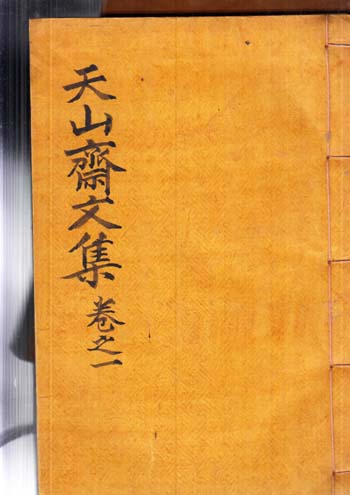 天山齋文集 卷之一